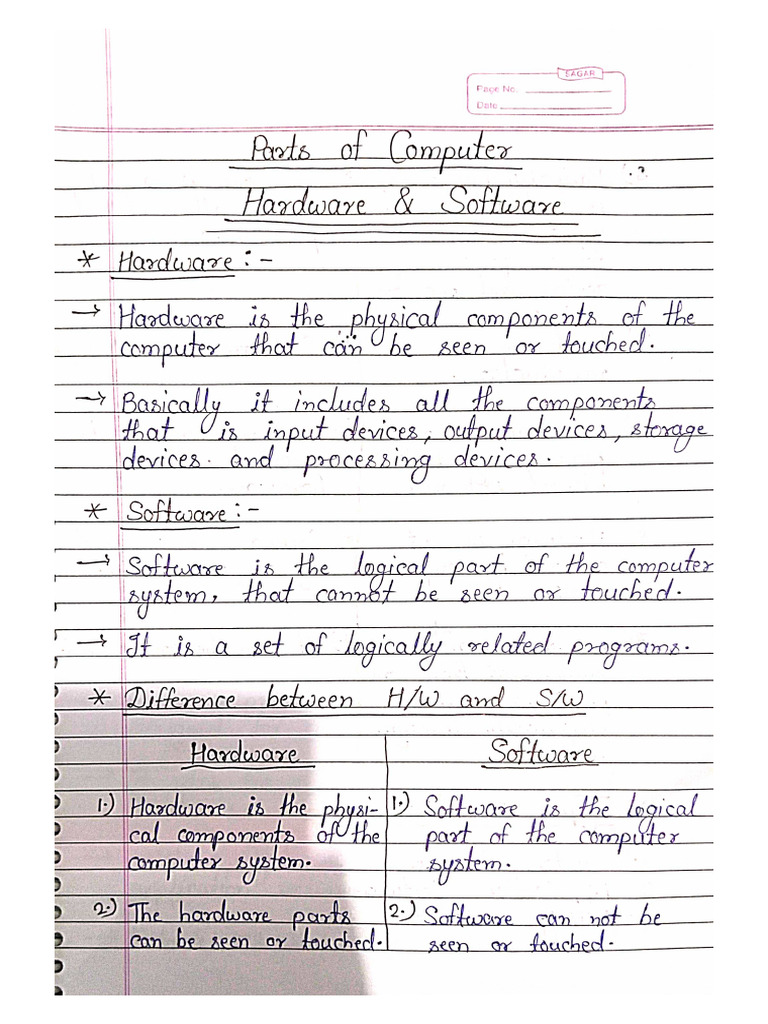 SAGAR
Page No.
Date
Parts of Computer
Hardware & Software
* Hardware :-
→ Hardware is the physical components of the
computer that can be seen or touched.
→ Basically it includes all the components
that is input devices, output devices, storage
devices. and processing devices.
* Software :-
→ Software is the logical part of the computer
system, that cannot be seen or touched.
→ It is a set of logically related programs.
* Difference between H/W and S/W
Hardware
1.) Hardware is the physi-
cal components of the
computer system.
2.) The hardware parts
can be seen or touched.
Software
1.) Software is the logical
part of the computer
system.
2.) Software can not be
seen or touched.